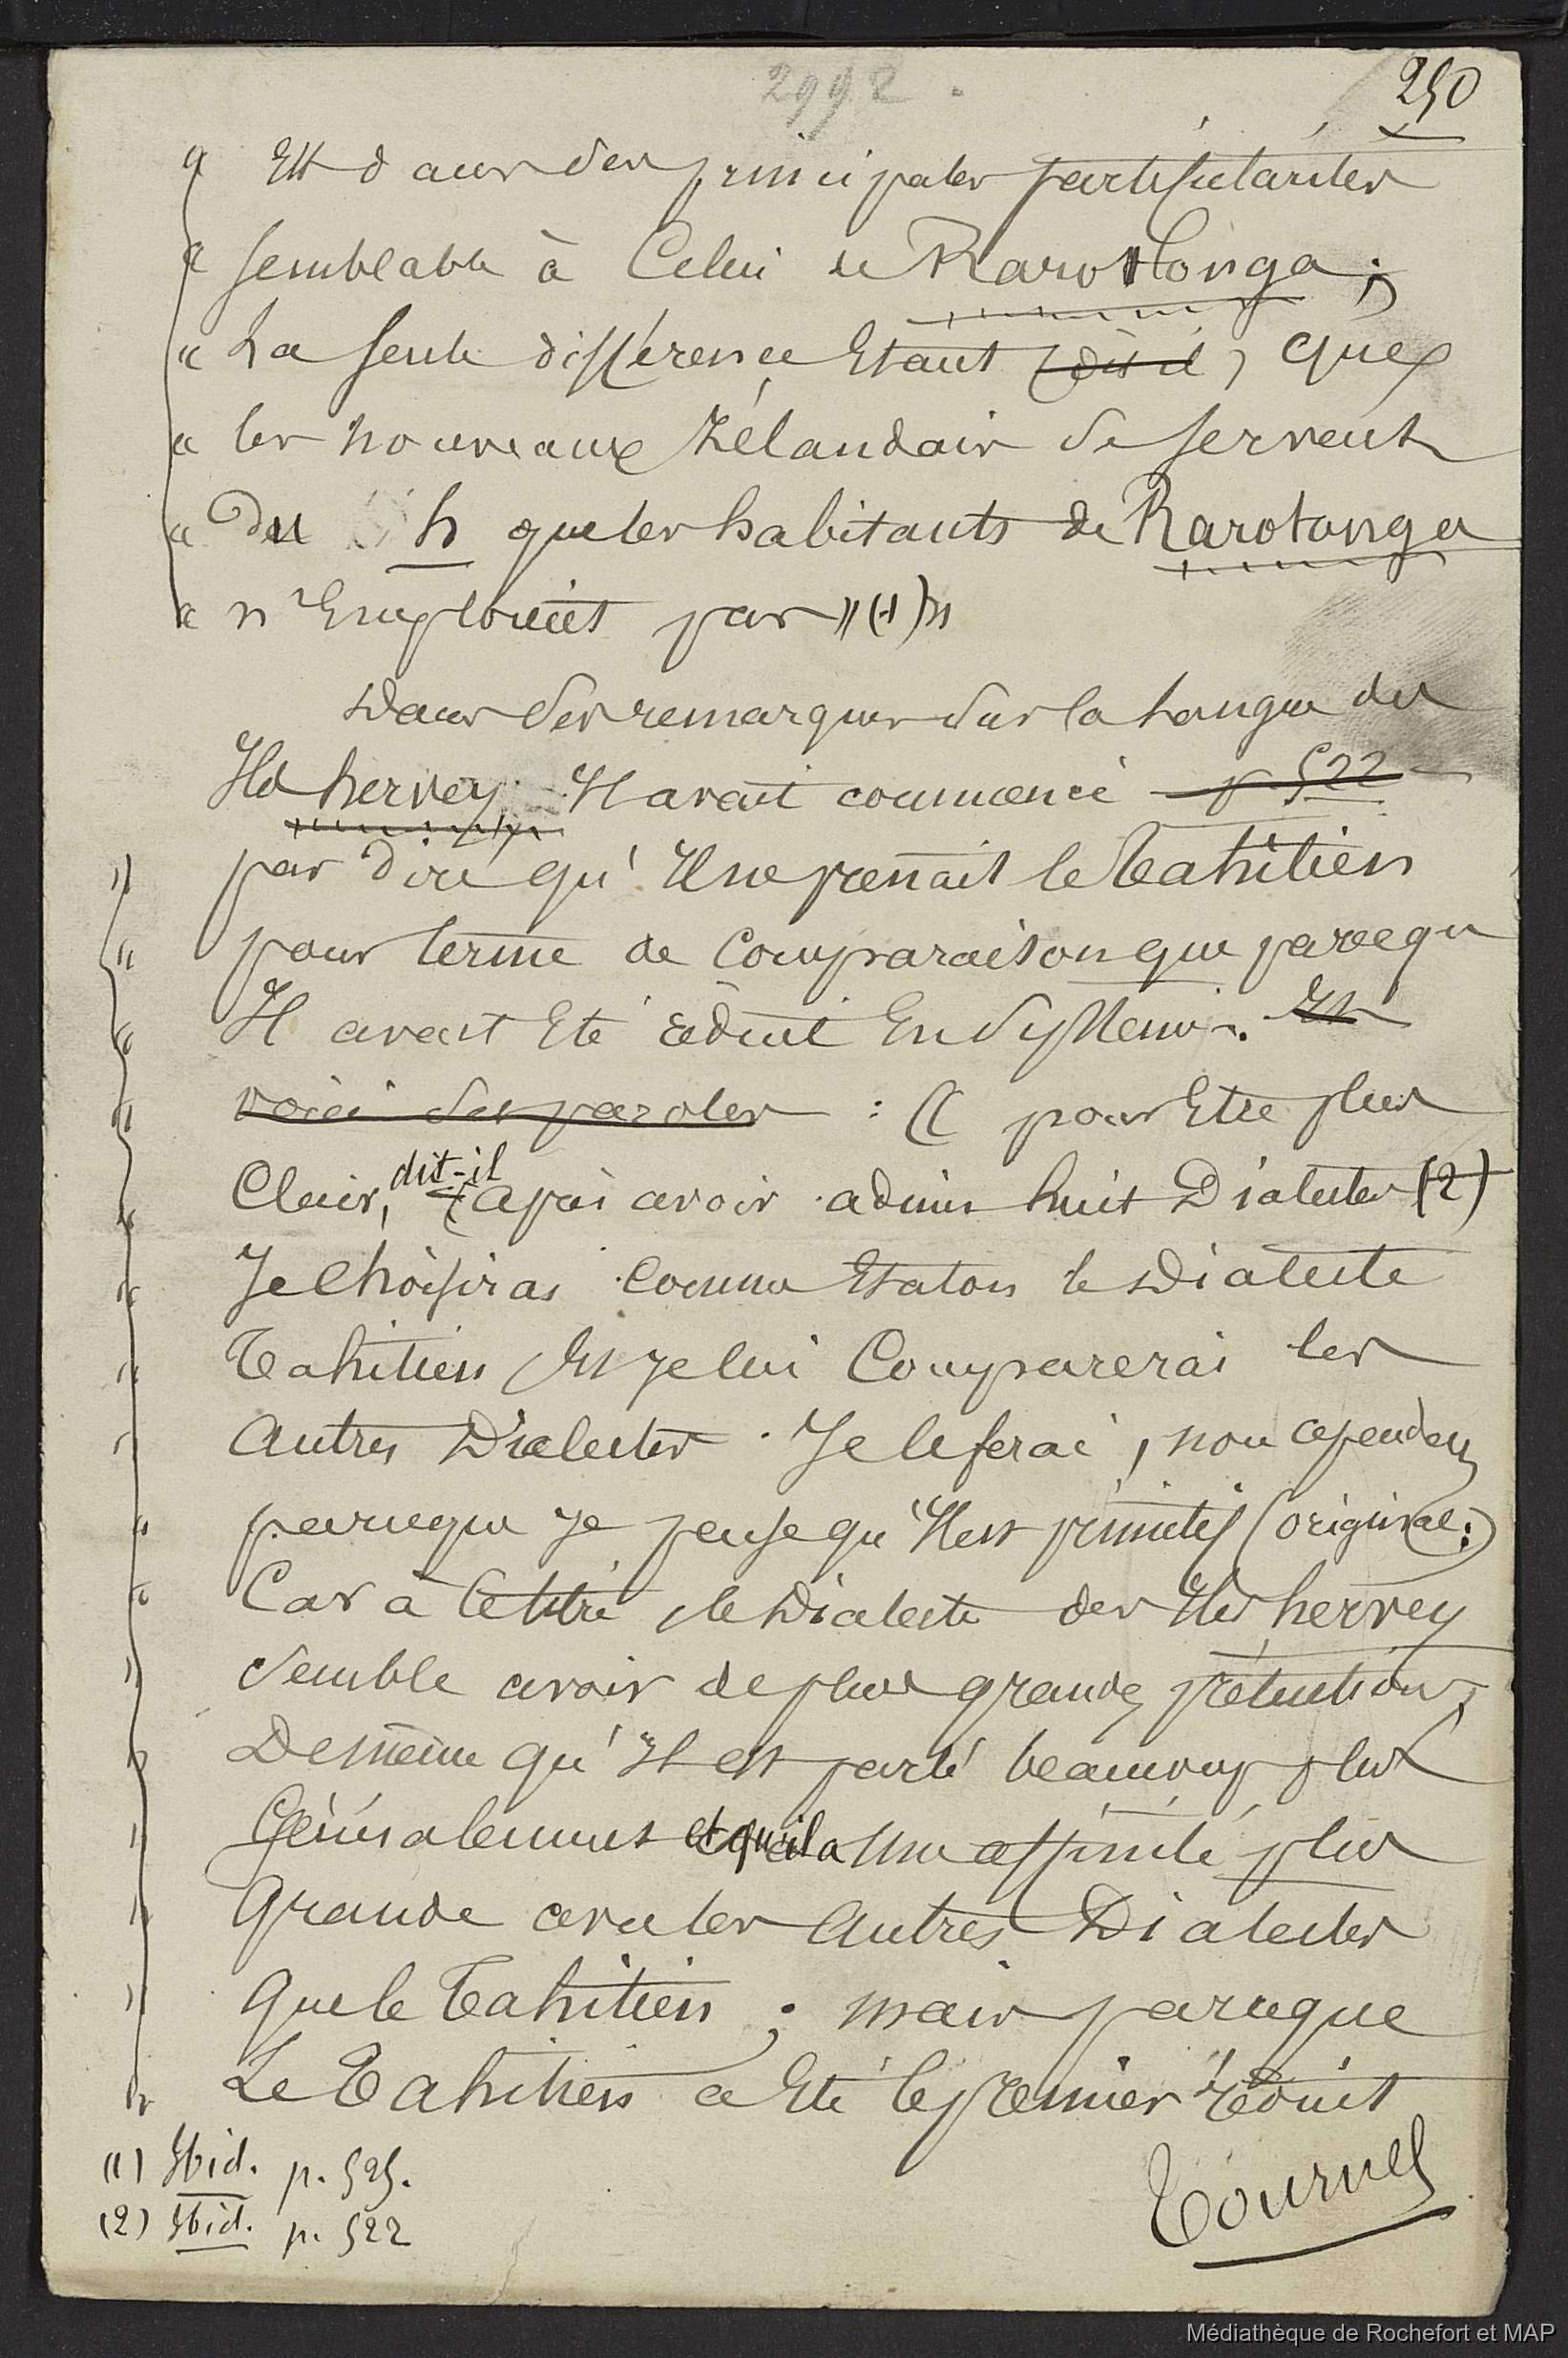 2992.
250
« Est dans ses principales particularités
« semblable à Celui de Rarotonga ;
« La seule différence Etant (dit-il), que
« les nouveaux Zélandais se servent
« Du h que les habitants de Rarotonga
« n'Emploient pas » (1) »
Dans ses remarques sur la Langue des
Iles hervey Il avait commencé p 522
» par dire qu'Il ne prenait le Tahitien
« pour terme de Comparaison que parcequ
« Il avait Eté réduit En Système. Et
« voici ses paroles : « pour Etre plus
« Clair, dit-il (après avoir admis huit Dialectes (2)
« Je Choisirai Comme Etalon le Dialecte
« Tahitien Et je lui Comparerai les
« Autres Dialectes. Je le ferai, non cependant
« parceque je pense qu'Il est primitif (original:)
« Car à ce titre le Dialecte des Iles hervey
» semble avoir de plus grandes prétentions,
» De même qu'Il est parlé beaucoup plus
» Généralement et qu'il a Une affinité plus
» Grande avec les Autres Dialectes
» Que le Tahitien ; mais parceque
» Le Tahitien a Eté le premier réduit
(1) Ibid. p. 525.
(2) Ibid. p. 522
Tournez
Médiathèque de Rochefort et MAP